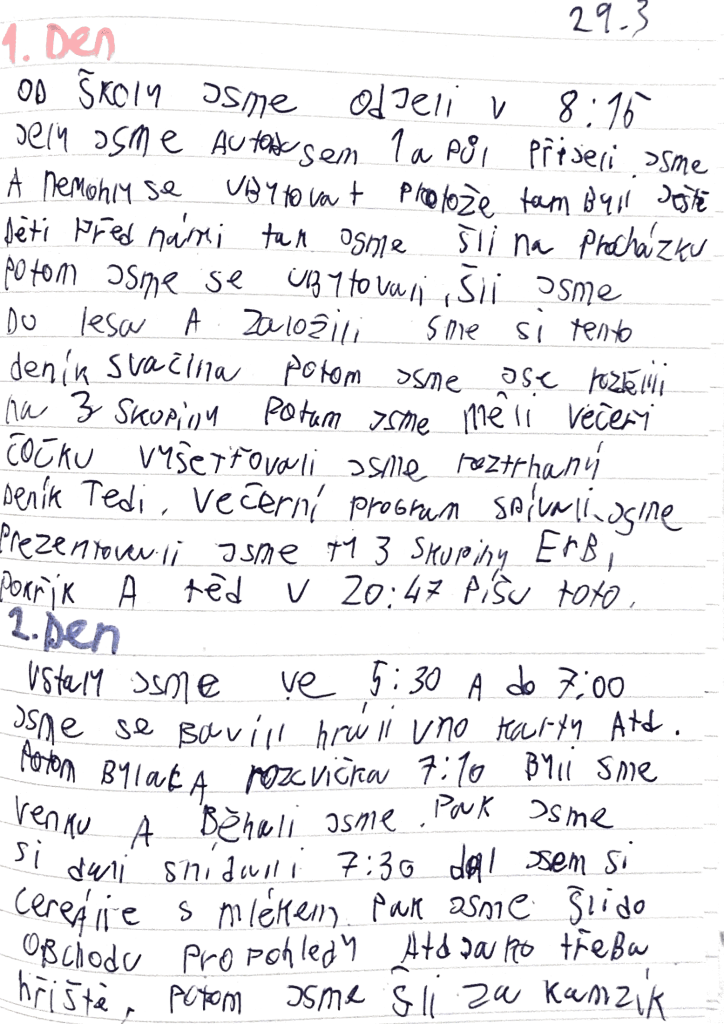 29.3
1. Den
OD ŠKOLY JSME ODJELI V 8:15
JELY JSME AUTOBUSEM 1 a PŮL PŘIJELI JSME
A NEMOHLY SE UBYTOVAT PROTOŽE TAM BYLI JEŠTĚ
DĚTI PŘED NÁMI TAK JSME ŠLI NA PROCHÁZKU
POTOM JSME SE UBYTOVALI, ŠLI JSME
DO LESA A ZALOŽILI SME SI TENTO
DENÍK SVAČINA POTOM JSME JSE ROZDĚLILI
NA 3 SKUPINY POTOM JSME MĚLI VEČEŘI
ČOČKU VYŠETŘOVALI JSME ROZTRHANÝ
DENÍK TEDI. VEČERNÍ PROGRAM SPÍVALI JSME
PREZENTOVALI JSME TY 3 SKUPINY ERB,
POKŘIK A TĚD V 20:47 PÍŠU TOTO.
2. Den
VSTALY JSME VE 5:30 A DO 7:00
JSME SE BAVILI HRÁLI UNO KARTY ATD.
POTOM BYLA ROZCVIČKA 7:10 BYLI SME
VENKU A BĚHALI JSME. PAK JSME
SI DALI SNÍDANI 7:30 DAL JSEM SI
CEREÁLIE S MLÉKEM. PAK JSME ŠLI DO
OBCHODU PRO POHLEDY ATD JAKO TŘEBA
HŘIŠTĚ, POTOM JSME ŠLI ZA KAMZÍK